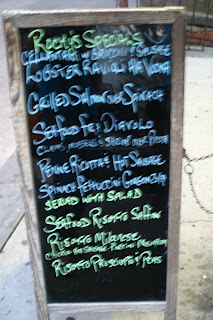 Rocky's Specials
Cavatappi w/ Broccoli & Sausage
Lobster Ravioli Ala Vodka
Grilled Salmon over Spinach
Seafood Fra Diavolo
Clams, Mussels & Shrimp over Pasta
Penne Ricotta & Hot Sausage
Spinach Fettuccini Gorgonzola
Served with Salad
Seafood Risotto Saffron
Risotto Milanese
Chicken Hot Sausage Porcini Mushroom
Risotto Prosciutto & Peas